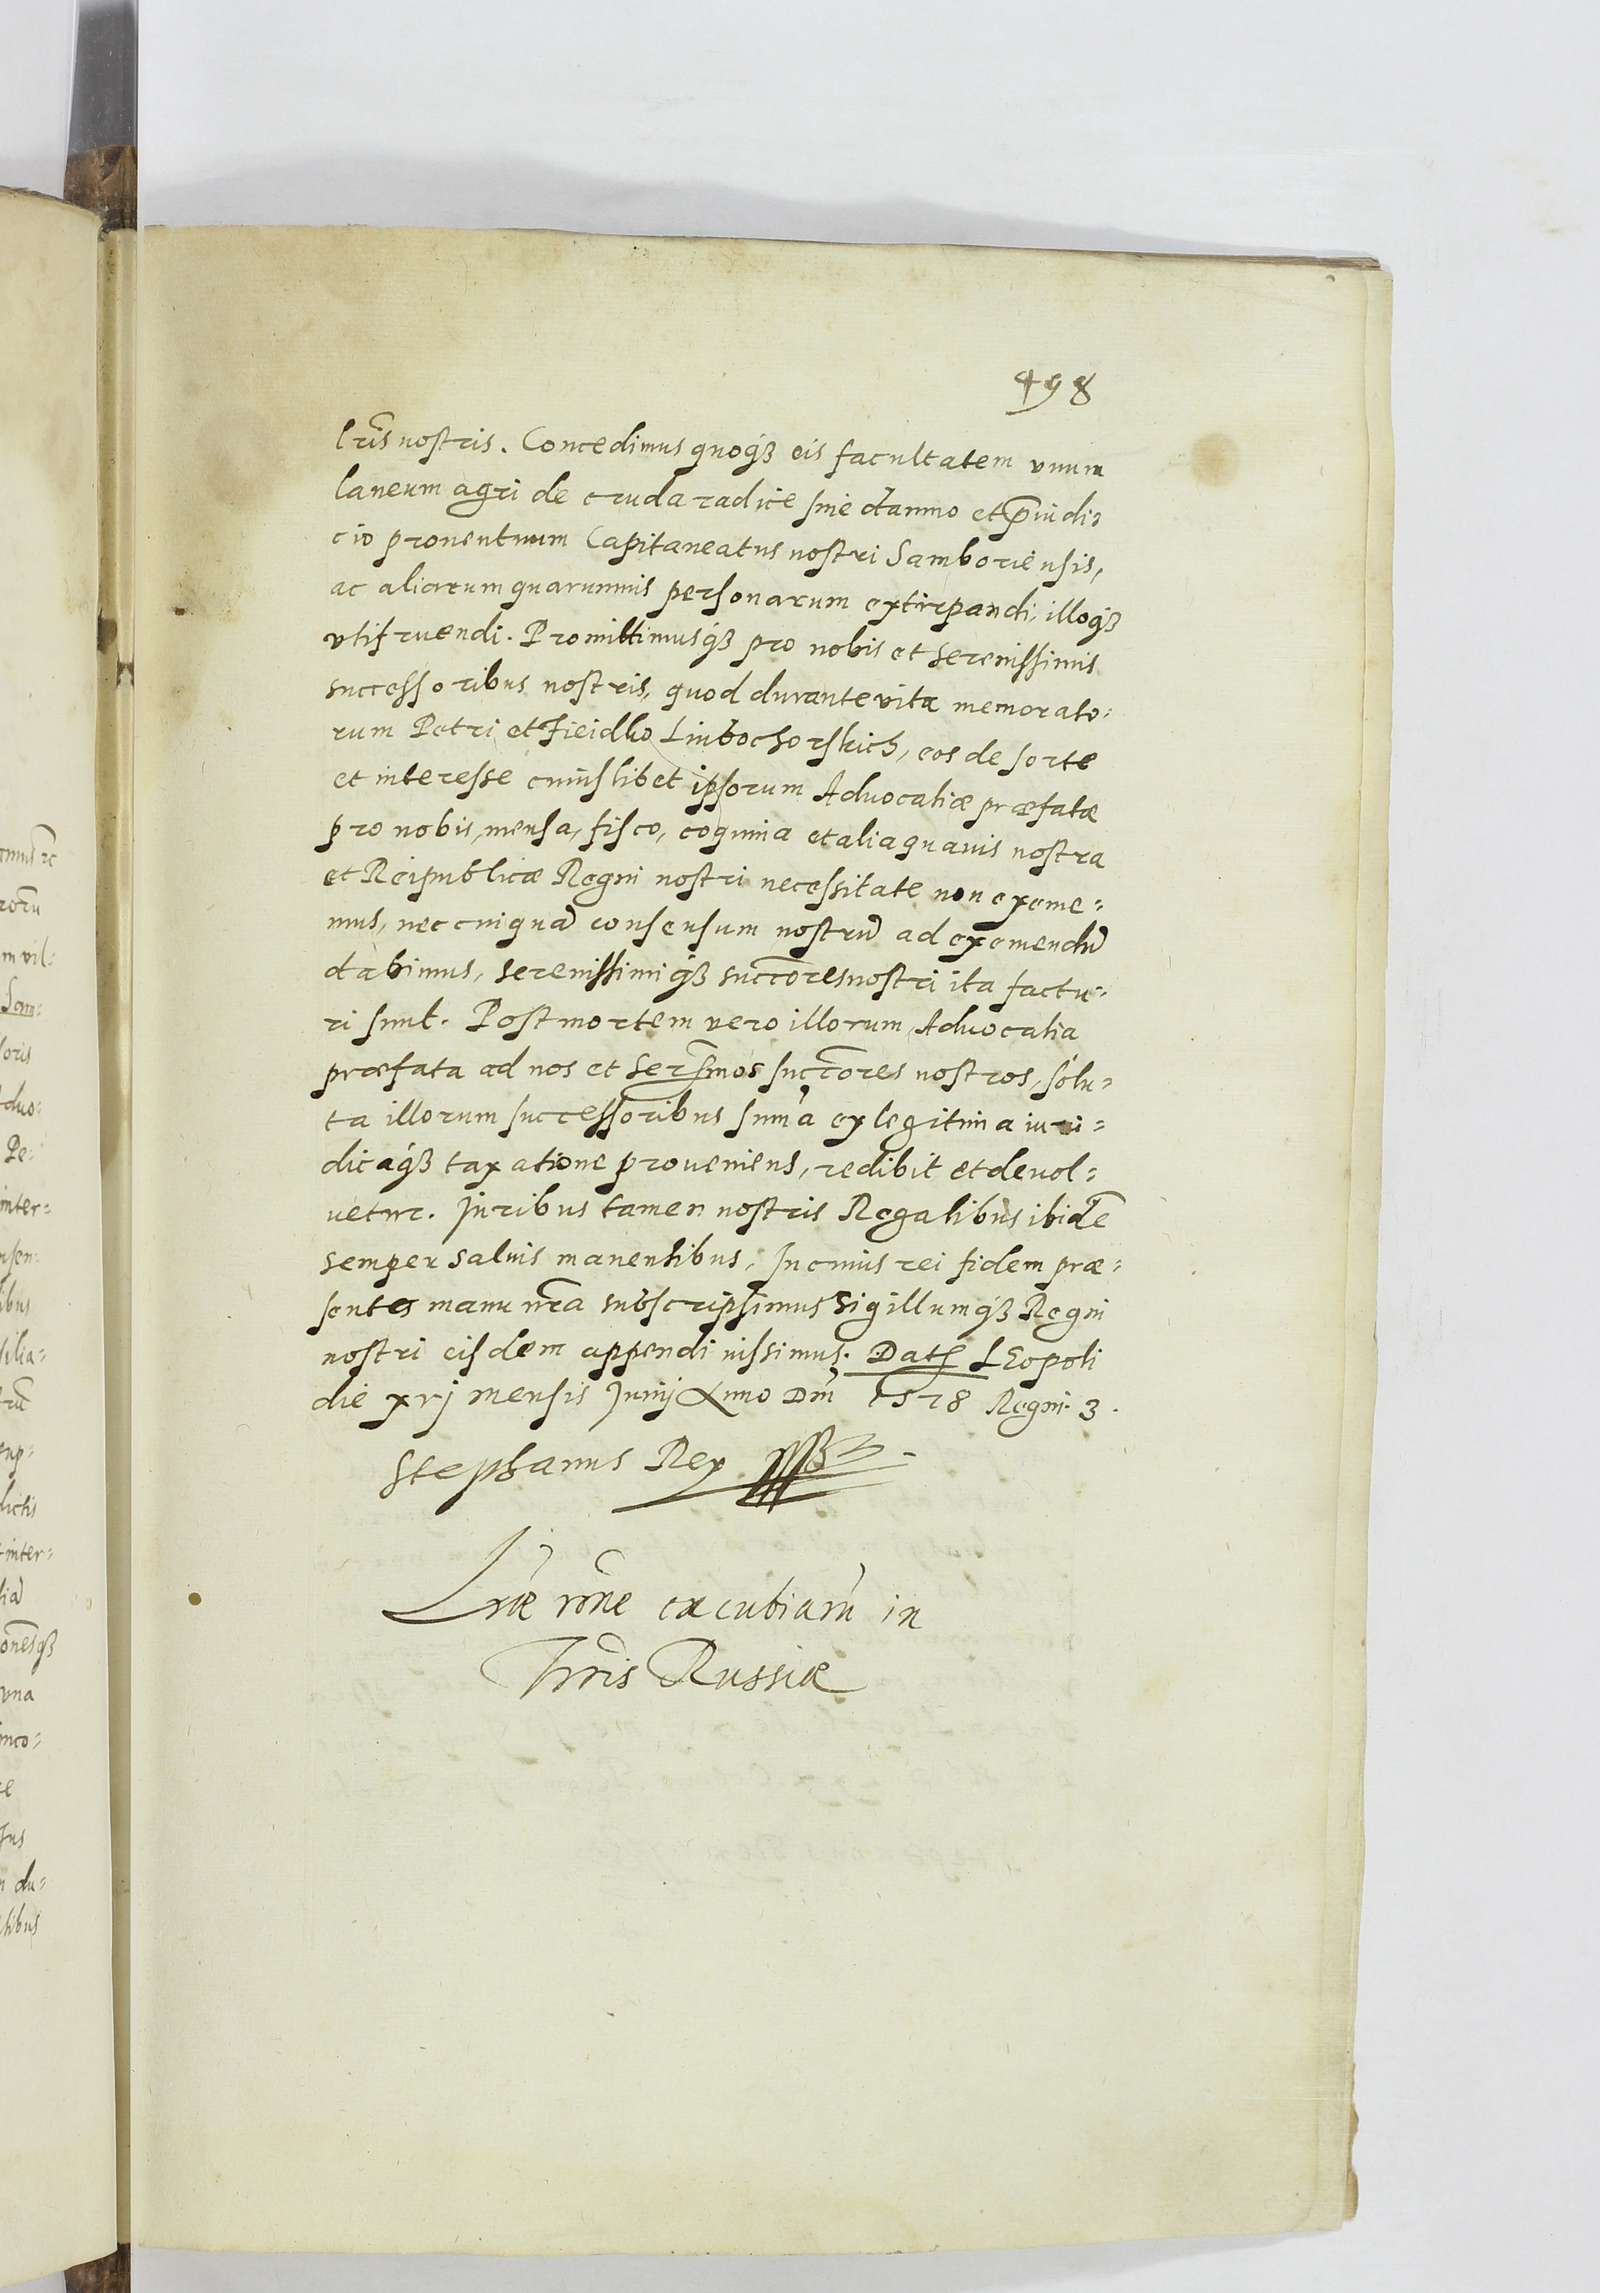 498
lris nostris. Concedimus quoqз eis facultatem vnum
laneum agri de cruda radice sine damno et p̄iudi=
cio prouentuum Capitaneatus nostri Samboriensis,
ac aliarum quarumuis personarum extirpandi, illoqз
vtifruendi. Promittimusqз pro nobis et serenissimis
successoribus nostris, quod durante vita memorato=
rum Petri et Fieidko Linbochorskich, eos de sorte
et interesse cuiuslibet ipsorum Aduocatiæ præfatæ
pro nobis, mensa, fisco, coquina et alia quauis nostra
et Reipublicæ Regni nostri necessitate non exeme=
mus, nec cuiquā consensum nostrū ad exemendū
dabimus, serenissimiqз succ̄ores nostri ita factu=
ri sunt. Post mortem vero illorum, Aduocatia
præfata ad nos et serm̄os succ̄ores nostros, solu=
ta illorum successoribus sum̄a ex legitima iuri=
dicaqз taxatione proueniens, redibit et deuol=
uetur. Juribus tamen nostris Regalibus ibidē
semper saluis manentibus, In cuius rei fidem præ=
sentes manu nr̄a subscripsimus Sigillumqз Regni
nostri eisdem appendi iussimus. Dat LEopoli
die xvj mensis Junij Anno Dni 1578 Regni. 3.
Stephanus Rex
Lr̄æ rōne excubiarū in
Tr̄ris Russiæ